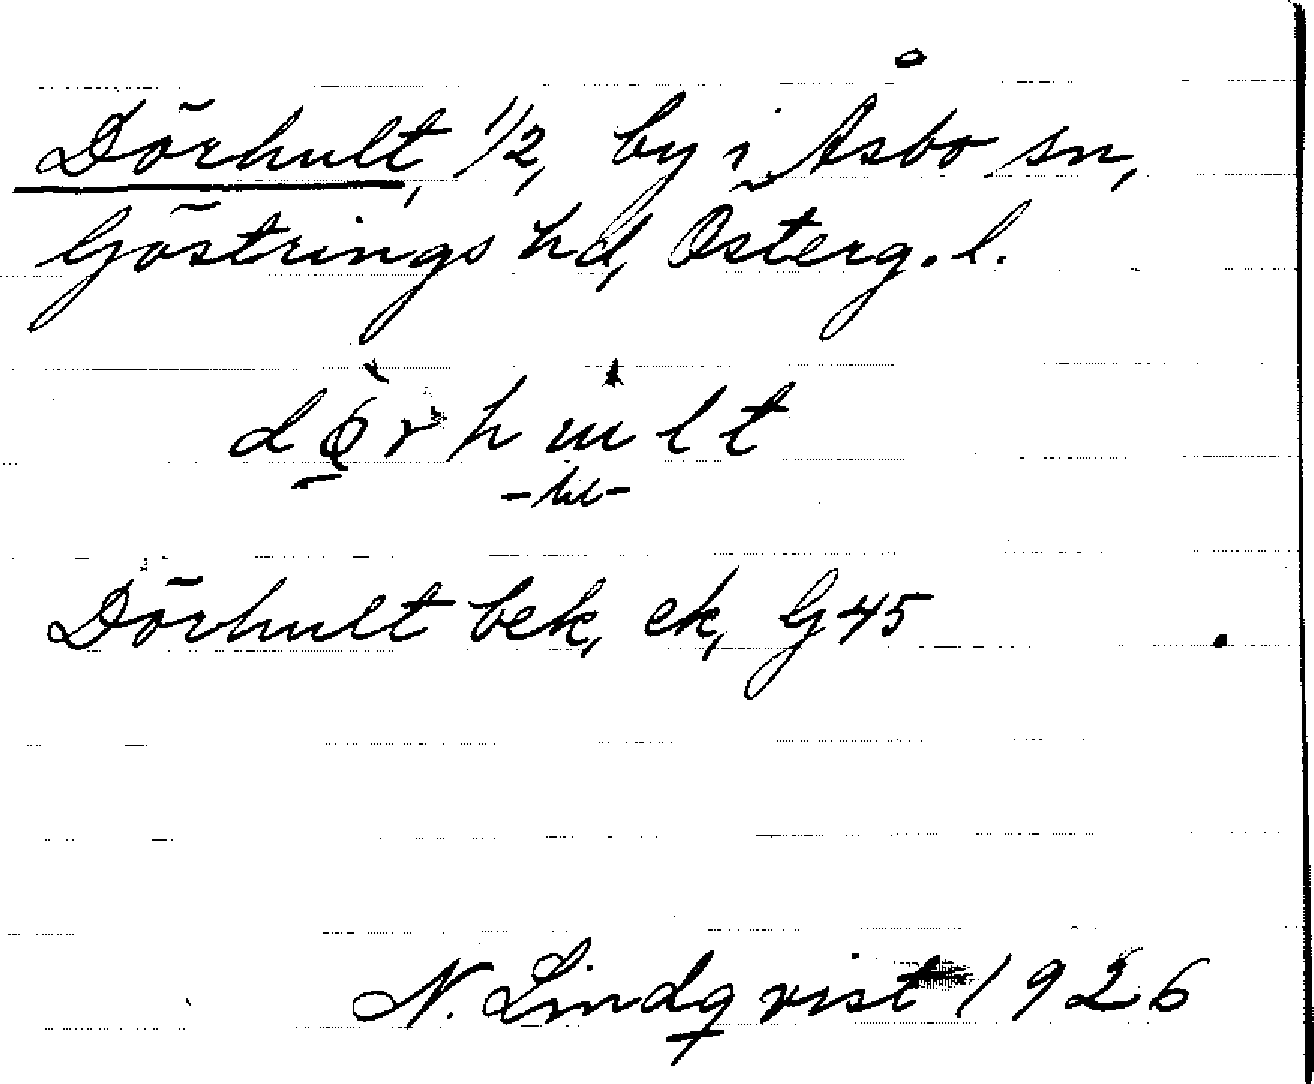 Dörhult, 1/2, by i Åsbo sn,
Göstrings hd, Österg. l.
dø̀rhult
Dörhult bek, ek, G 45
N. Lindqvist 1926